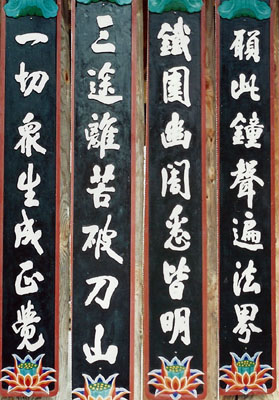 願此鐘聲遍法界
鐵圍幽闇悉皆明
三途離苦破刀山
一切衆生成正覺